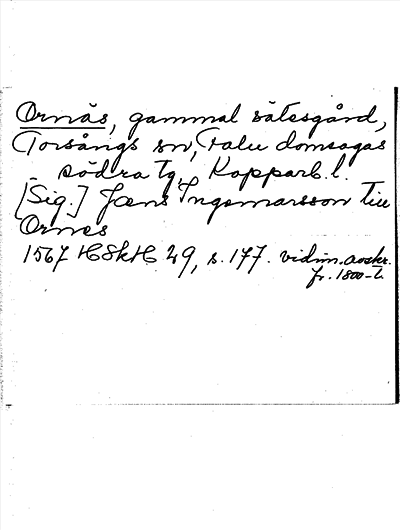 Ornäs, gammal sätesgård,
Torsångs sn, Falu domsagas
södra tg, Kopparb. l.
[Sig.] Jæns Ingemarsson till
Ornes
1567 HSkH 29, s. 177. vidim. avskr.
fr. 1800-t.